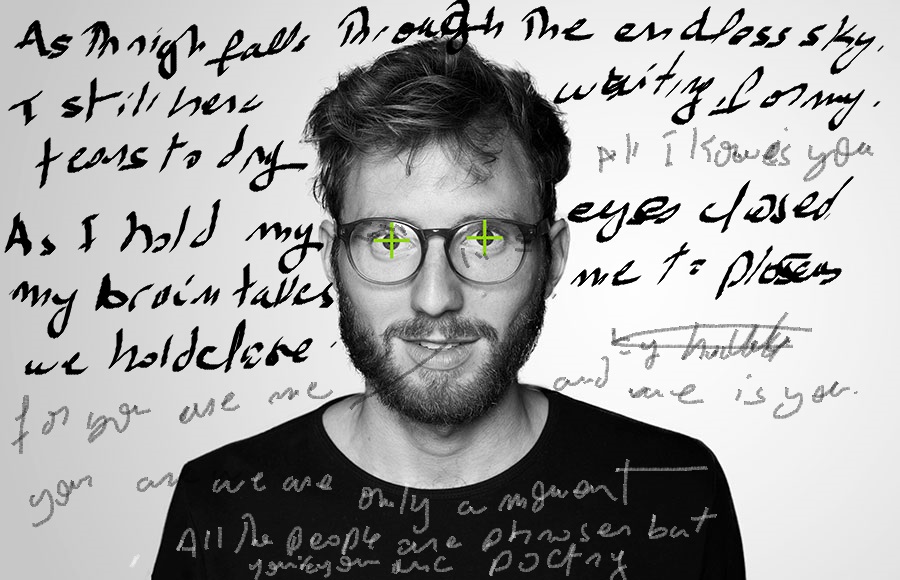 As Th nigh falls Through The endless sky,
I still here waiting for my.
tears to dry
all I know is you
As I hold my eyes closed
my brain takes me to places
we hold close.
for you are me and me is you.
your are we are only a moment
All The people are phrases but
poetry